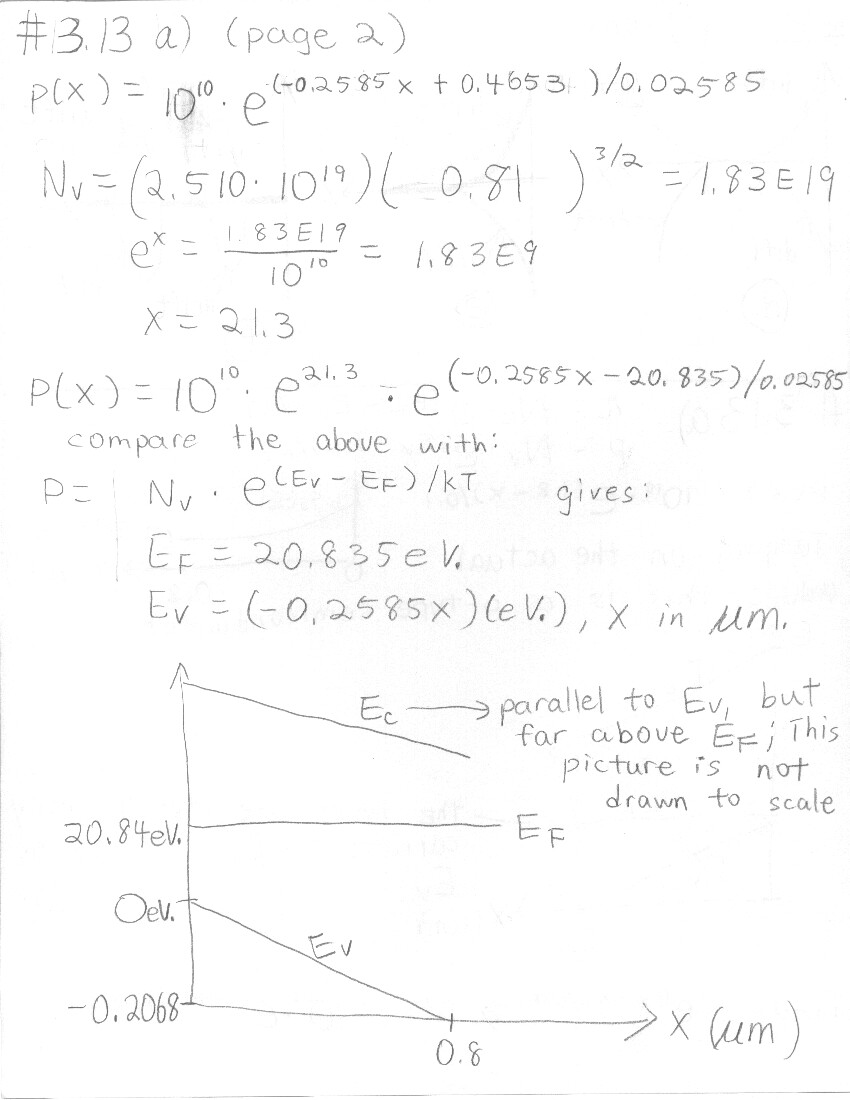 #3.13 a) (page 2)
P(x) = 10^10 · e^(-0.2585x + 0.4653)/0.02585
Nv = (2.510·10^19)(0.81)^3/2 = 1.83E19
e^x = 1.83E19/10^10 = 1.83E9
x = 21.3
P(x) = 10^10 · e^21.3 ÷ e^(-0.2585x - 20.835)/0.02585
compare the above with:
P = Nv · e^(Ev - EF)/kT gives:
EF = 20.835eV.
Ev = (-0.2585x)(eV.), x in μm.
Ec → parallel to Ev, but
far above EF; This
picture is not
drawn to scale
20.84eV. EF
0eV.
Ev
-0.2068
x (μm)
0.8